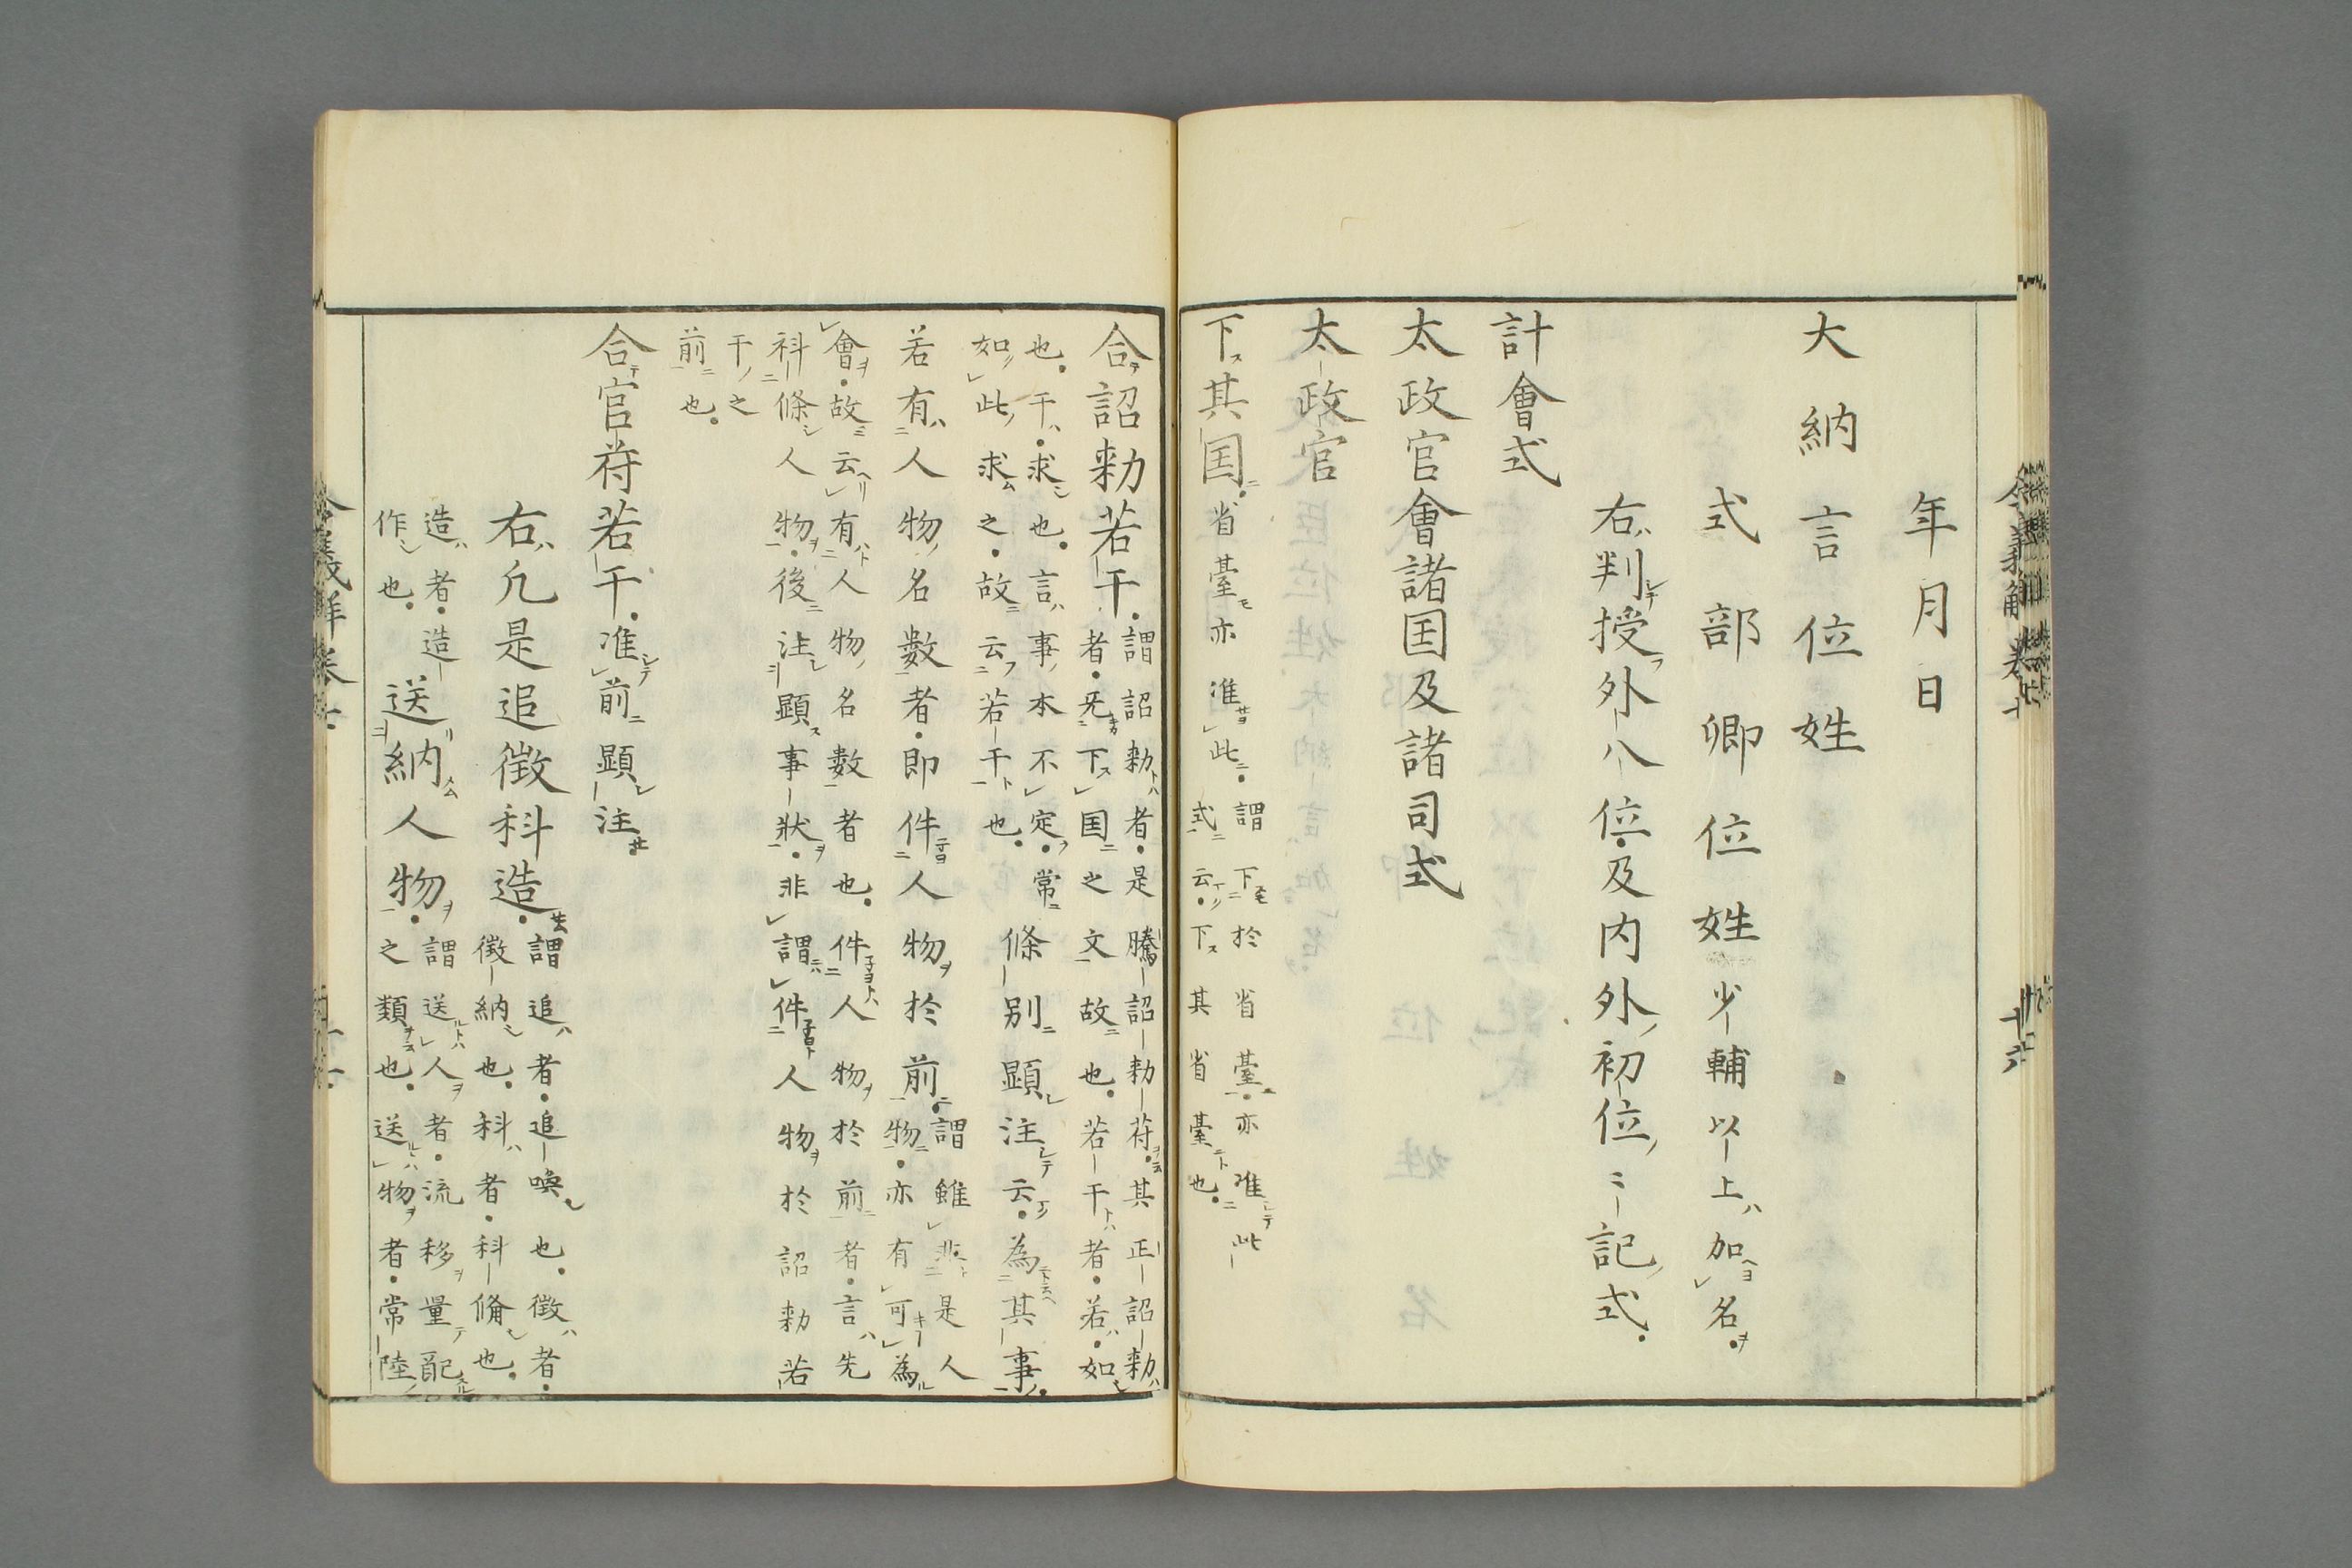 年月日
大納言位姓
式部卿位姓少輔以上加名
右判授外八位及内外初位ミ記式
計會式
太政官會諸国及諸司式
太政官
下其国省臺亦准此
謂下於省臺亦准此
式云下其省臺也
合詔勅若干
謂詔勅者是騰詔勅符其正詔勅
者旡下国之文故也若干者若如
也干求也言事本不定常
如此求之故云若干也
條别顕注云為其事
若有人物名數者即件人物於前
謂雖非是人
物亦有可為
會故云有人物名數者也件人物於前者言先
科條人物後注顕事狀非謂件人物於詔勅若
干之
前也
合官符若干准前顕注
右凡是追徴科造
謂追者追喚也徴者
徴納也科者科脩也
造者造
作也
送納人物
謂送人者流移量配
之類也送物者常陸